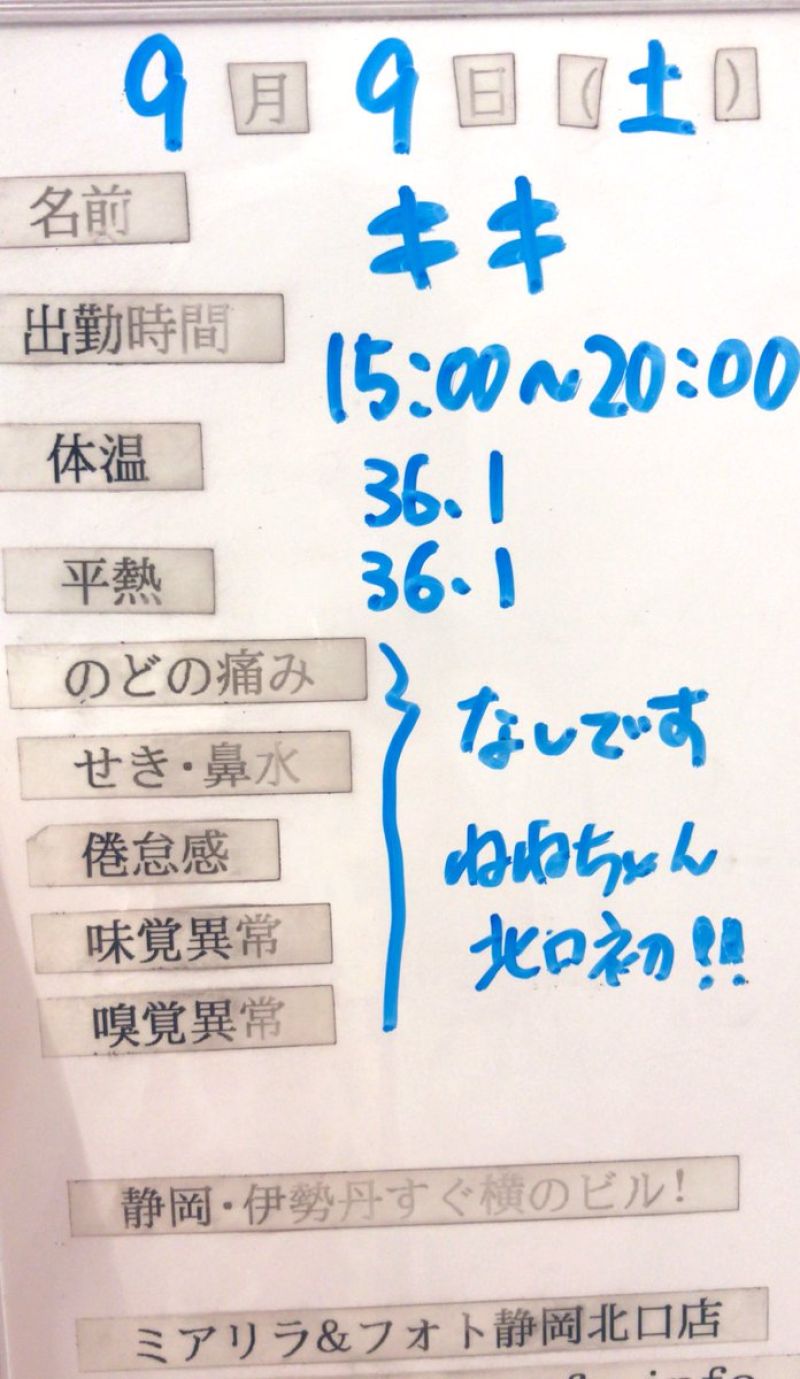 9月9日(土)
名前 キキ
出勤時間 15:00~20:00
体温 36.1
平熱 36.1
のどの痛み
せき・鼻水 なしです
倦怠感 ねねちゃん
味覚異常 北口初!!
嗅覚異常
静岡・伊勢丹すぐ横のビル!
ミアリラ&フォト静岡北口店